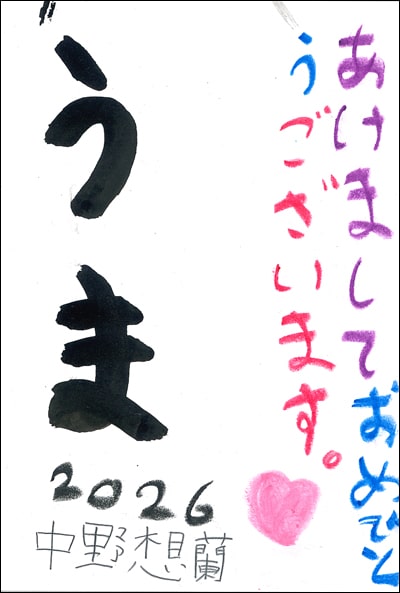 あけましておめでと
うございます。
うま
2026
中野想蘭